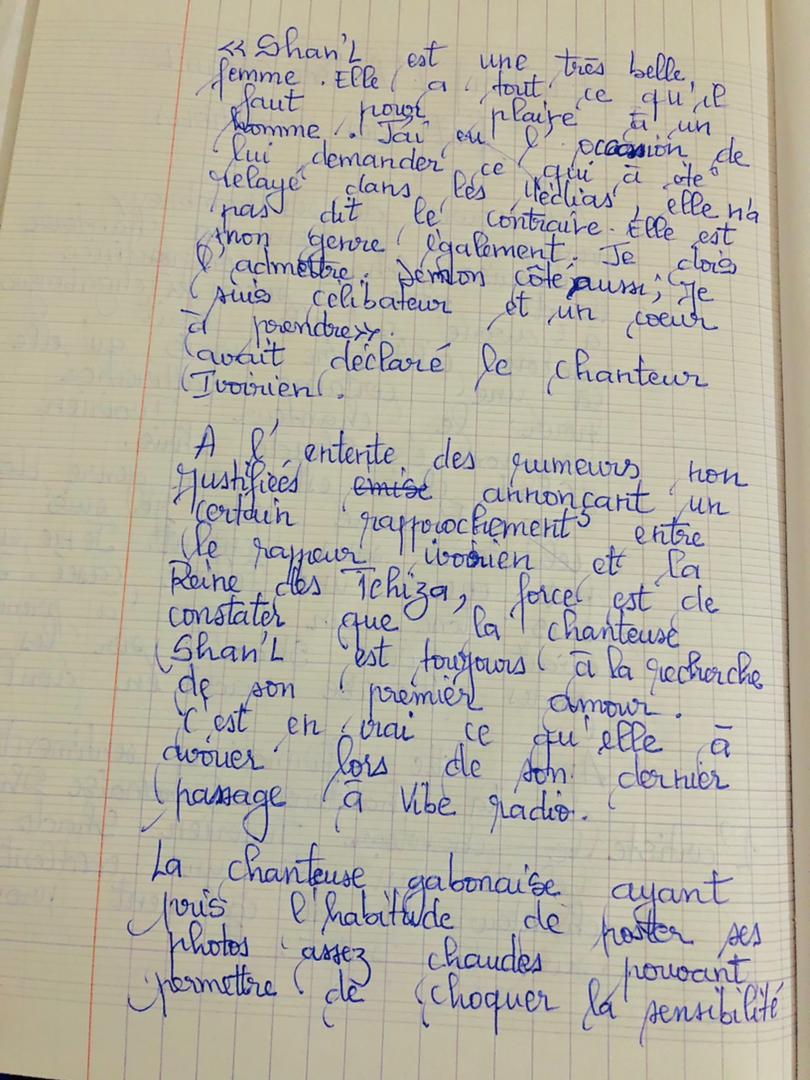 « Shan'L est une très belle
femme. Elle a tout ce qu'il
faut pour plaire à un
homme. J'ai eu l'occasion de
lui demander ce qui à été
relayé dans les Médias, elle n'a
pas dit le contraire. Elle est
mon genre également. Je dois
l'admettre. De mon côté aussi, je
suis célibateur et un coeur
à prendre».
avait déclaré le chanteur
Ivoirien.
A l'entente des rumeurs non
justifiées emise annonçant un
certain rapprochement entre
le rappeur ivoirien et la
Reine des Tchiza, force est de
constater que la chanteuse
Shan'L est toujours à la recherche
de son premier amour.
C'est en vrai ce qu'elle à
avouer lors de son dernier
passage à Vibe radio.
La chanteuse gabonaise ayant
pris l'habitude de poster ses
photos assez chaudes pouvant
permettre de choquer la sensibilité